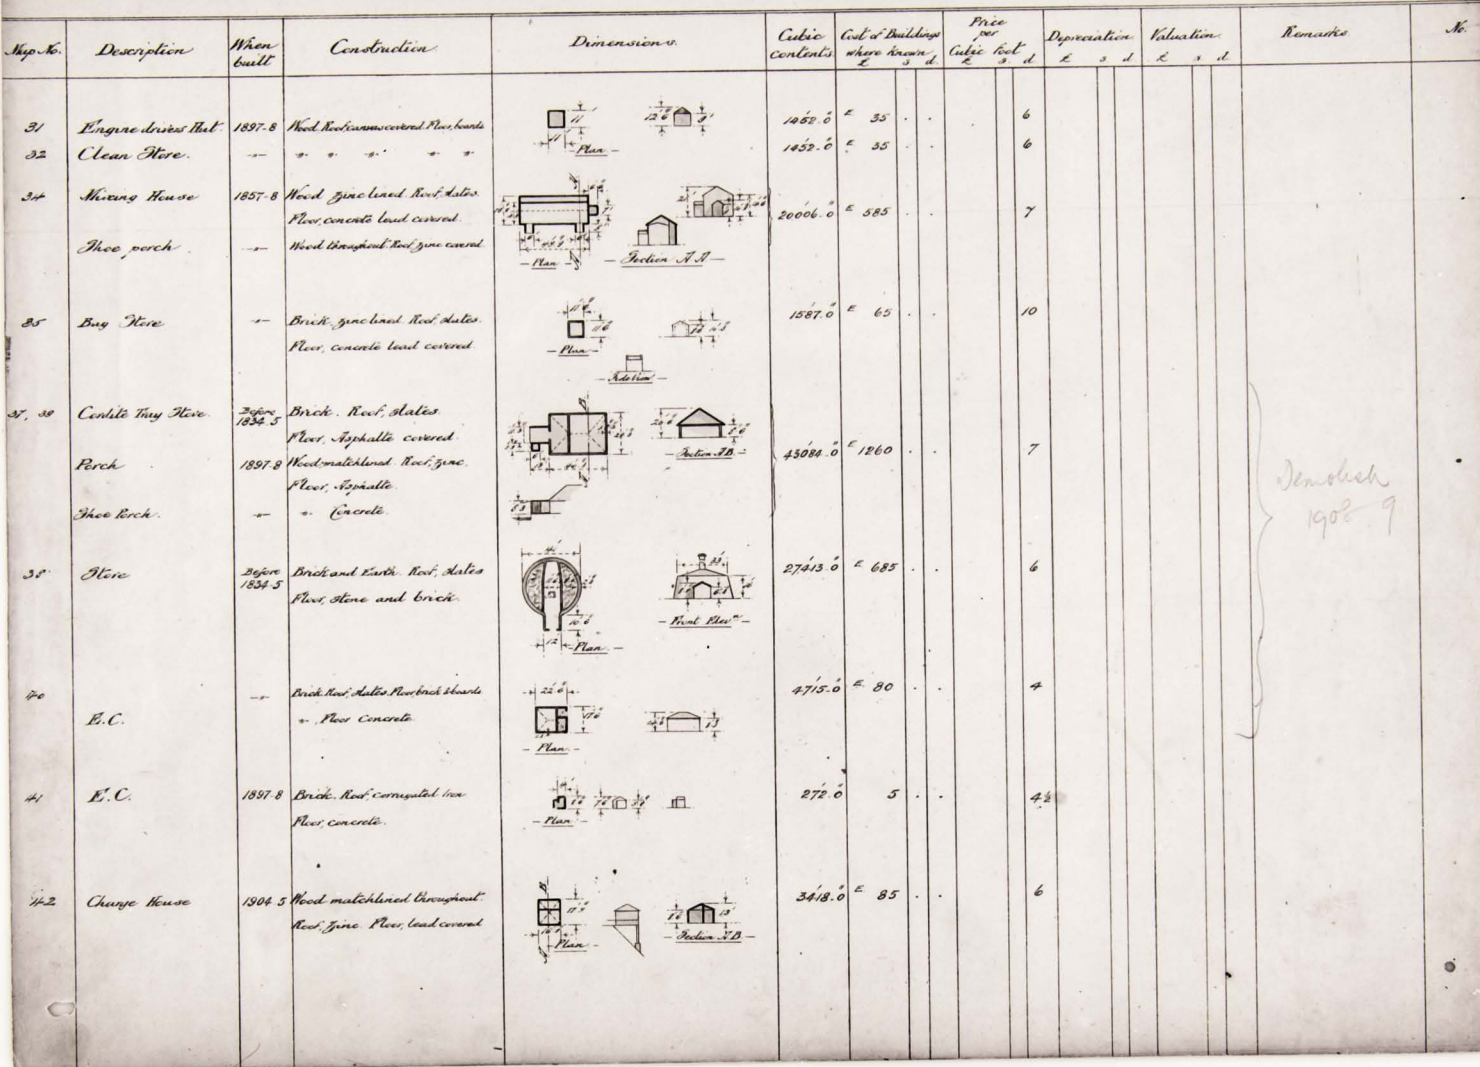 Map No. Description When built Construction Dimensions. Cubic contents Cost of Buildings where known £ s d. Price per Cubic foot £ s. d Depreciation £ s d Valuation. £ s d. Remarks No.
31 Engine drivers Hut. 1897-8 Wood. Roof, canvas covered. Floor, boards 11' 11' 12'6" 9' Plan 1452.0 E 35 . . 6
32 Clean Store. " " " " " " 1452.0 E 35 . . 6
34 Mixing House 1857-8 Wood zinc lined. Roof, slates.
Floor, concrete lead covered. 20006.0 E 585 . . 7
Shoe porch. " Wood throughout Roof, zinc covered
Plan Section A A
35 Bag Store " Brick, zinc lined. Roof, slates. 11'6" 11'6" 1587.0 E 65 . . 10
Floor, concrete lead covered Plan
Side View
37, 39 Cordite Tray Store. Before 1834-5 Brick. Roof, slates.
Floor, Asphalte covered. 43084.0 E 1260 . . 7
Section AB
Porch 1897-8 Wood matchlined. Roof, zinc.
Floor, Asphalte.
Shoe Porch. " " Concrete.
Demolish
1908-9
38 Store Before 1834-5 Brick and Earth. Roof, slates 27413.0 E 685 . . 6
Floor, stone and brick.
10'6" 12' Plan Front Elevn
40 " Brick Roof, slates. Floor, brick & boards 22'6" 17'6" 4715.0 E 80 . . 4
E.C. " Floor Concrete
Plan
41 E.C. 1897-8 Brick. Roof, corrugated Iron 272.0 5 . . 4½
Floor, concrete. Plan
42 Change House 1904-5 Wood matchlined throughout. 3418.0 E 85 . . 6
Roof, zinc. Floor, lead covered
Plan Section AB